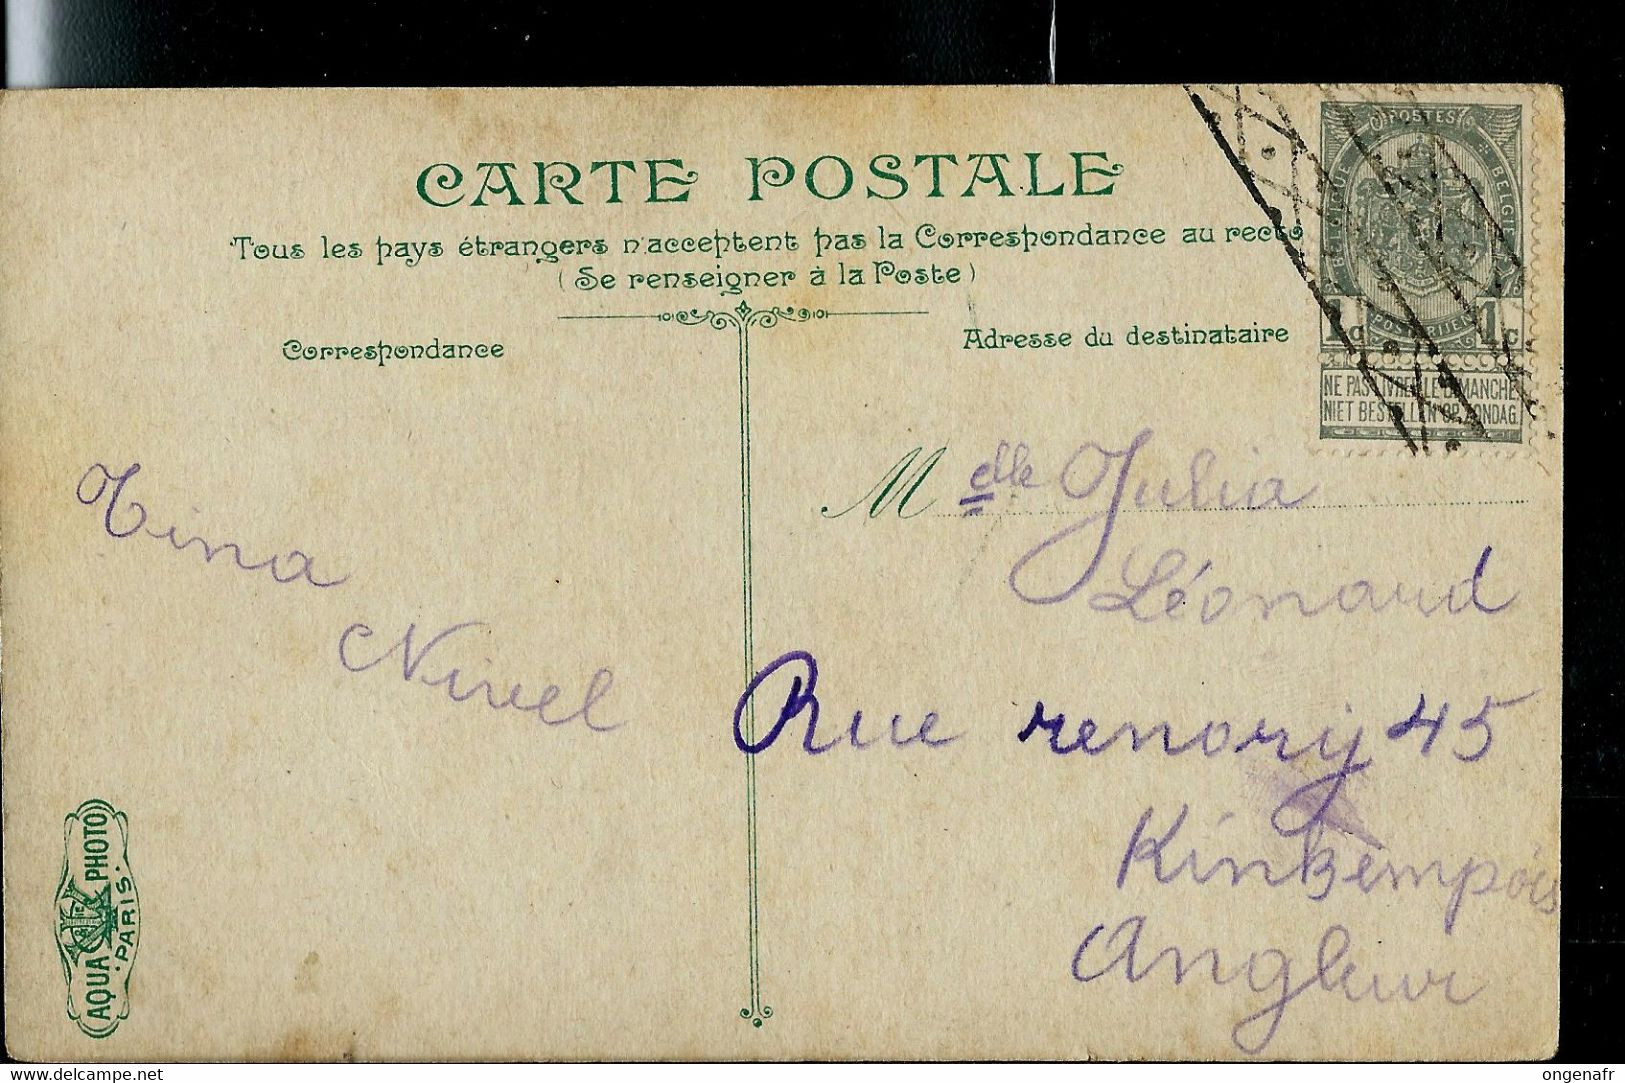 CARTE POSTALE
Tous les pays étrangers n'acceptent pas la Correspondance au recto
(Se renseigner à la Poste)
Correspondance
Adresse du destinataire
POSTES
BELGIQUE
BELGIË
POSTERIJEN
1c 1c
NE PAS LIVRER LE DIMANCHE
NIET BESTELLEN OP ZONDAG
Tina
Nivel
Mdlle Julia
Léonard
Rue renory 45
Kinkempois
Angleur
AQUA PHOTO
PARIS
delcampe.net
ongenafr